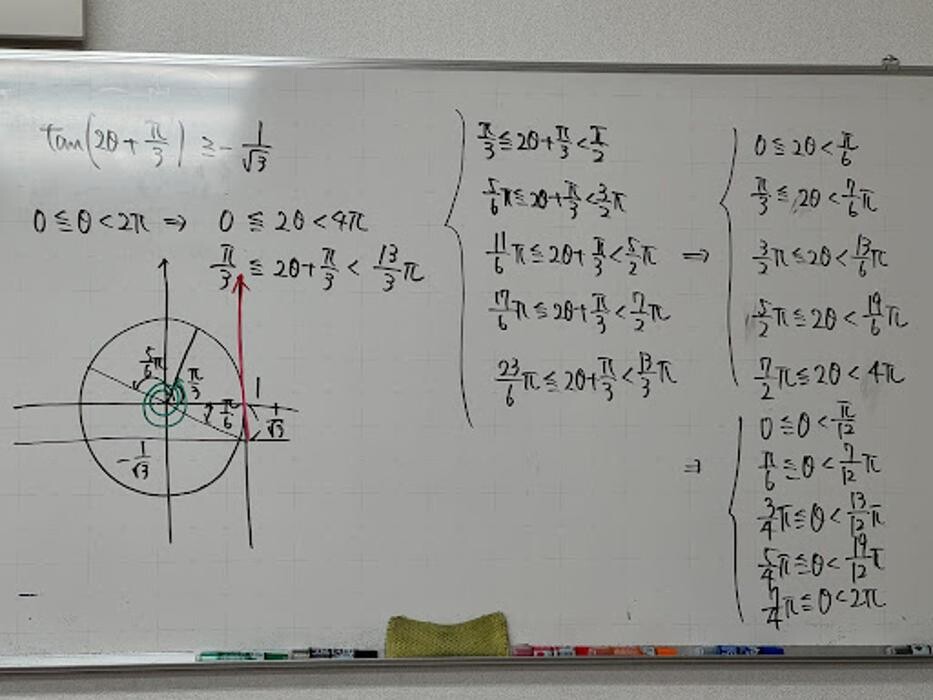 tan(2θ + π/3) ≧ -1/√3
0 ≦ θ < 2π ⇒ 0 ≦ 2θ < 4π
π/3 ≦ 2θ + π/3 < 13/3 π
5/6 π
π/3
1
π/6
1/√3
-1/√3
π/3 ≦ 2θ + π/3 < π/2
5/6 π ≦ 2θ + π/3 < 3/2 π
11/6 π ≦ 2θ + π/3 < 5/2 π ⇒
17/6 π ≦ 2θ + π/3 < 7/2 π
23/6 π ≦ 2θ + π/3 < 13/3 π
0 ≦ 2θ < π/6
π/3 ≦ 2θ < 7/6 π
3/2 π ≦ 2θ < 13/6 π
5/2 π ≦ 2θ < 19/6 π
7/2 π ≦ 2θ < 4π
⇒
0 ≦ θ < π/12
π/6 ≦ θ < 7/12 π
3/4 π ≦ θ < 13/12 π
5/4 π ≦ θ < 19/12 π
7/4 π ≦ θ < 2π